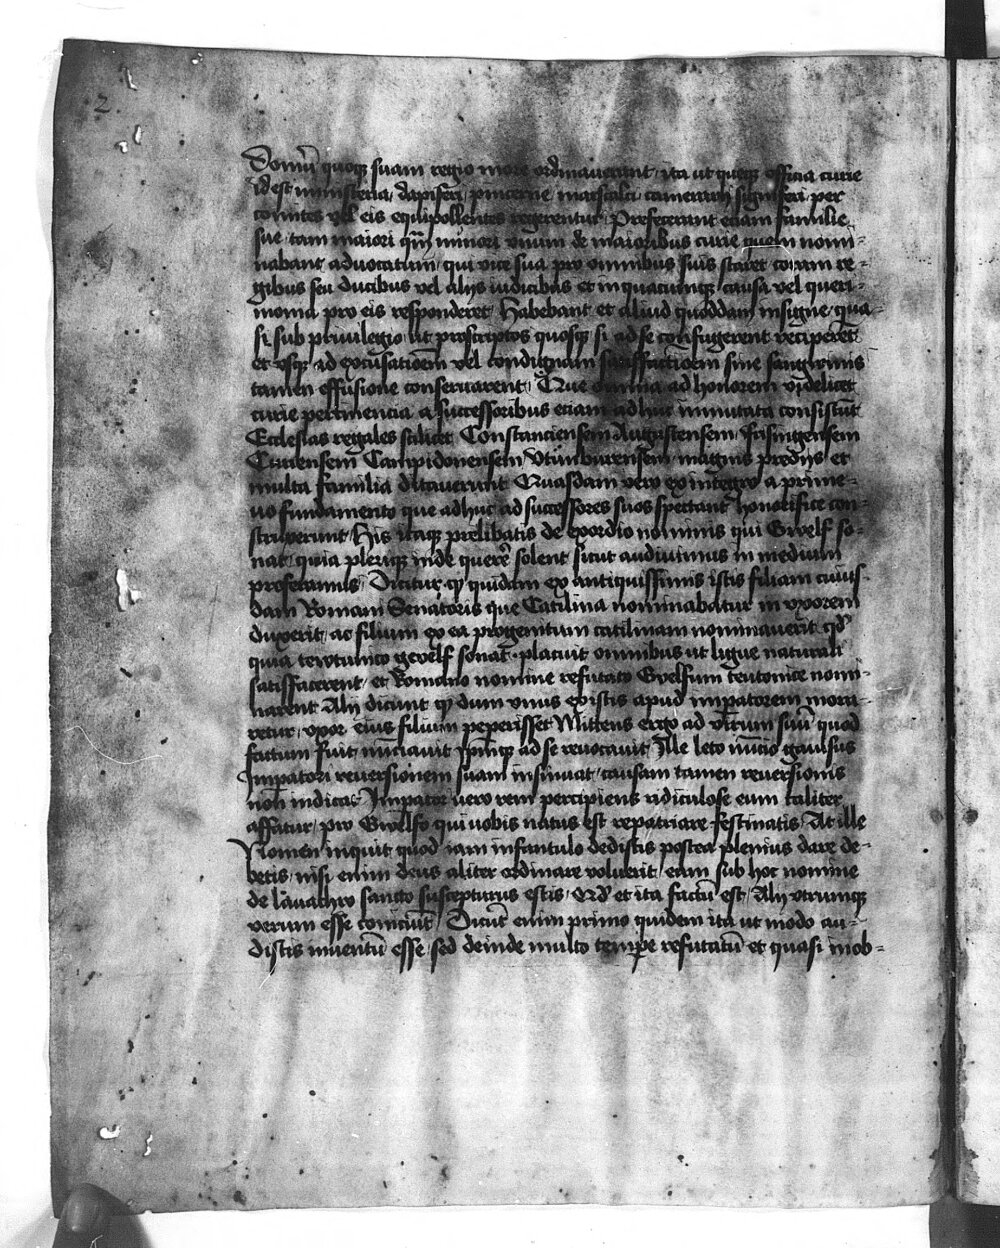 2
Domū quoqȝ suam regio more ordinauerunt ita ut queqȝ officia curie
id est ministeria, dapiferi, pincerne marscalci camerarij signiferi per
comites vel eis equipollentes regerentur, Prefecerunt etiam familie
sue tam maiori qm̄ minori vnum de maioribus curie quem nomi-
nabant aduocatum qui vice sua pro omnibus suis staret coram re-
gibus seu Ducibus vel alijs iudicibus et in quacumqȝ causa vel queri-
monia pro eis responderet Habebant et aliud quoddam insigne qua-
si sub priuilegio ut proscriptos quosqȝ si ad se confugerent reciperēt
et vsqȝ ad excusatioēm vel condignam satisfactioēm sine sanguinis
tamen effusione conseruarent, Que omnia ad honorem videlicet
curie pertinencia a successoribus etiam adhuc immutata consistūt
Ecclesias regales scilicet Constanciensem Augustensem, frisingensem
Curiensem Campidonensem Vtinburensem, magnis predijs et
multa familia ditauerunt Quasdam vero ex integro a prime-
uo fundamento que adhuc ad successores suos spectant honorifice con-
struxerunt His itaqȝ prelibatis de exordio nominis qui Gwelf so-
nat quia pleriqȝ inde querer̄ solent sicut audiuimus in medium
proferamus Dicitur qȝ quidam ex antiquissimis istis filiam cuius-
dam Romani Senatoris que Catilina nominabatur in vxorem
duxerit, ac filium ex ea progenitum catilinam nominauerit qd̄
quia tewtunico gewelf sonat placuit omnibus ut ligue naturali
satisfacerent, et Romano nomine refutato Gwelfum teutonice nomi-
narent Alij dicunt qȝ dum vnus ex istis apud impatorem mora-
retur, vxor eius filium peperisset Mittens ergo ad virum suū quod
factum fuit nuciauit ipm̄qȝ ad se reuocauit Ille leto nūcio gauisus
Impatori reuersionem suam insinuat, causam tamen reuersionis
non indicat Impator vero rem percipiens ridiculose eum taliter
affatur, pro Gwelfo qui uobis natus est repatriare festinatis, At ille
Nomen inquit quod iam infantulo dedistis postea plenius dare de-
betis, nisi enim deus aliter ordinare voluerit, eum sub hoc nomine
de lauachro sancto suscepturus estis, Qd̄ et ita factū est, Alij vtrumqȝ
verum esse coniciūt, Dicūt enim primo quidem ita ut modo au-
distis inuentū esse sed deinde multo tempe refutatū et quasi inob-